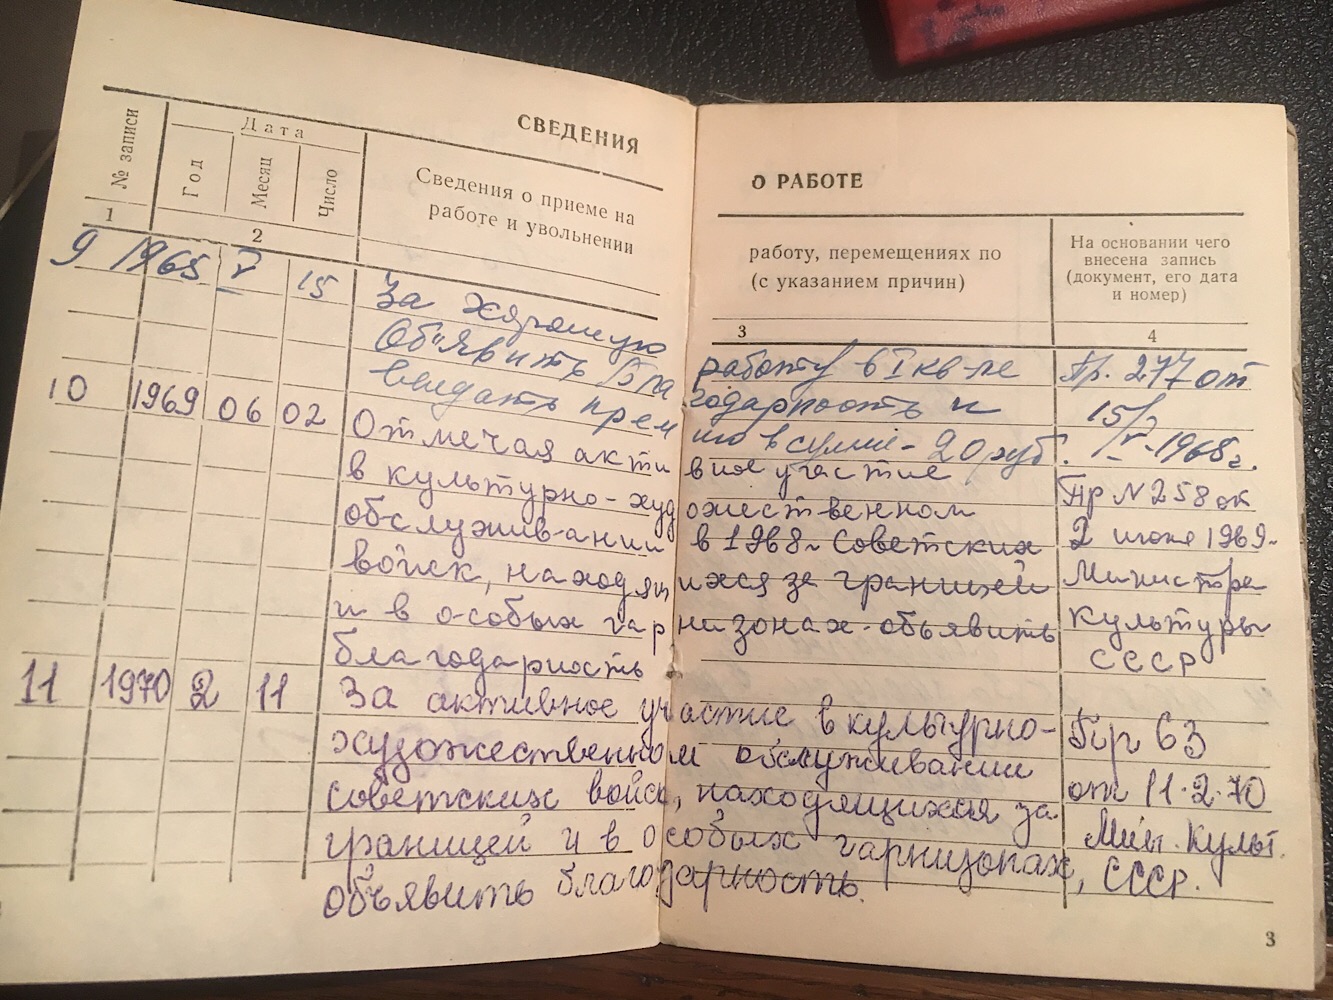 СВЕДЕНИЯ О РАБОТЕ
№ записи
Дата
Год
Месяц
Число
Сведения о приеме на работу, перемещениях по
работе и увольнении (с указанием причин)
На основании чего
внесена запись
(документ, его дата
и номер)
1 2 3 4
9 1965 V 15 За хорошую работу в I кв-ле Пр. 277 от
Объявить Благодарность и 15/V-1968г.
выдать премию в сумме - 20 руб.
10 1969 06 02 Отмечая активное участие Пр N 258 ок
в культурно-художественном 2 июня 1969г
обслуживании в 1968г Советских Министра
войск, находящихся за границей Культуры
и в особых гарнизонах-объявить СССР
благодарность
11 1970 2 11 За активное участие в культурно- Пр 63
художественном обслуживании от 11.2.70
советских войск, находящихся за Мин. культ.
границей и в особых гарнизонах, СССР.
объявить благодарность.
3